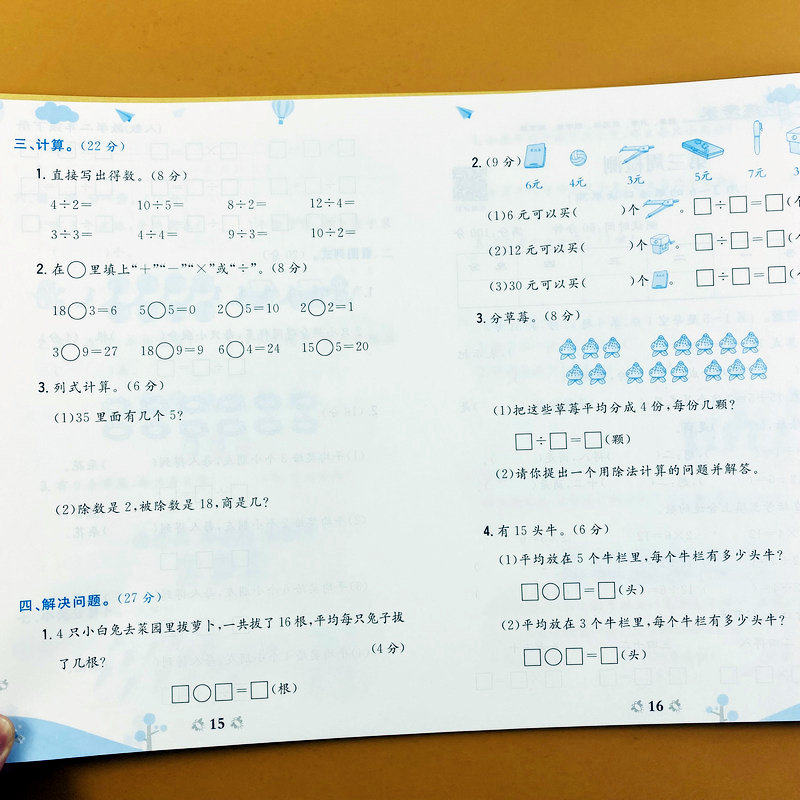 三、计算。(22 分)
1. 直接写出得数。(8 分)
4÷2= 10÷5= 8÷2= 12÷4=
3÷3= 4÷4= 9÷3= 10÷2=
2. 在○里填上“+”“-”“×”或“÷”。(8 分)
18○3=6 5○5=0 2○5=10 2○2=1
3○9=27 18○9=9 6○4=24 15○5=20
3. 列式计算。(6 分)
(1)35 里面有几个 5?
(2)除数是 2,被除数是 18,商是几?
四、解决问题。(27 分)
1. 4 只小白兔去菜园里拔萝卜,一共拔了 16 根,平均每只兔子拔
了几根? (4 分)
□○□=□(根)
15
2. (9 分)
6元 4元 3元 5元 7元
(1)6 元可以买( )个 。 □÷□=□(
(2)12 元可以买( )个 。 □÷□=□(
(3)30 元可以买( )个 。 □÷□=□(
3. 分草莓。(8 分)
(1)把这些草莓平均分成 4 份,每份几颗?
□÷□=□(颗)
(2)请你提出一个用除法计算的问题并解答。
4. 有 15 头牛。(6 分)
(1)平均放在 5 个牛栏里,每个牛栏有多少头牛?
□○□=□(头)
(2)平均放在 3 个牛栏里,每个牛栏有多少头牛?
□○□=□(头)
16